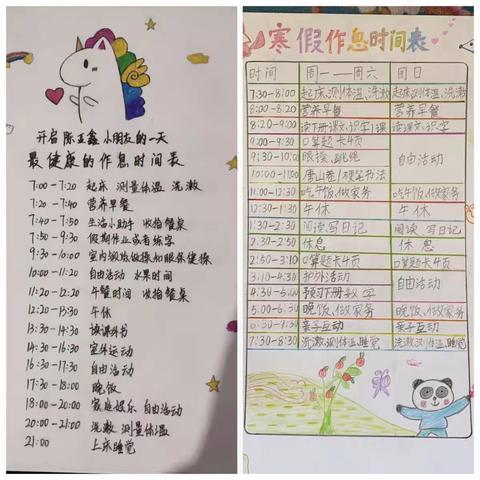 开启陈正鑫小朋友的一天
最健康的作息时间表
7:00-7:20 起床 测量体温 洗漱
7:20-7:40 营养早餐
7:40-7:50 生活小助手 收拾餐桌
7:50-9:30 假期作业或者练字
9:30-10:00 室内锻炼做操和眼保健操
10:00-11:20 自由活动 水果时间
11:20-12:20 午餐时间 收拾餐桌
12:20-13:30 午休
13:30-14:30 读课外书
14:30-16:30 室外运动
16:30-17:30 自由活动
17:30-18:00 晚饭
18:00-20:00 家庭娱乐 自由活动
20:00-21:00 洗漱 测量体温
21:00 上床睡觉
寒假作息时间表
时间 周一——周六 周日
7:30-8:00 起床、测体温、洗漱 起床、测体温、洗漱
8:00-8:20 营养早餐 营养早餐
8:20-9:00 读下册课文、识字1课 读课文、识字
9:00-9:30 口算题卡4页 自由活动
9:30-10:00 眼操、跳绳
10:00-11:00 唐山卷/硬笔书法
11:00-12:30 吃午饭、做家务 吃午饭、做家务
12:30-1:30 午休 午休
1:30-2:30 阅读、写日记 阅读、写日记
2:30-2:50 休息 休息
2:50-3:10 口算题卡4页 口算题卡4页
3:10-4:30 户外活动 自由活动
4:30-5:00 预习下册数学
5:00-6:30 晚饭、做家务 晚饭、做家务
6:30-7:30 亲子互动 亲子互动
7:30-8:30 洗漱、测体温、睡觉 洗漱、测体温、睡觉